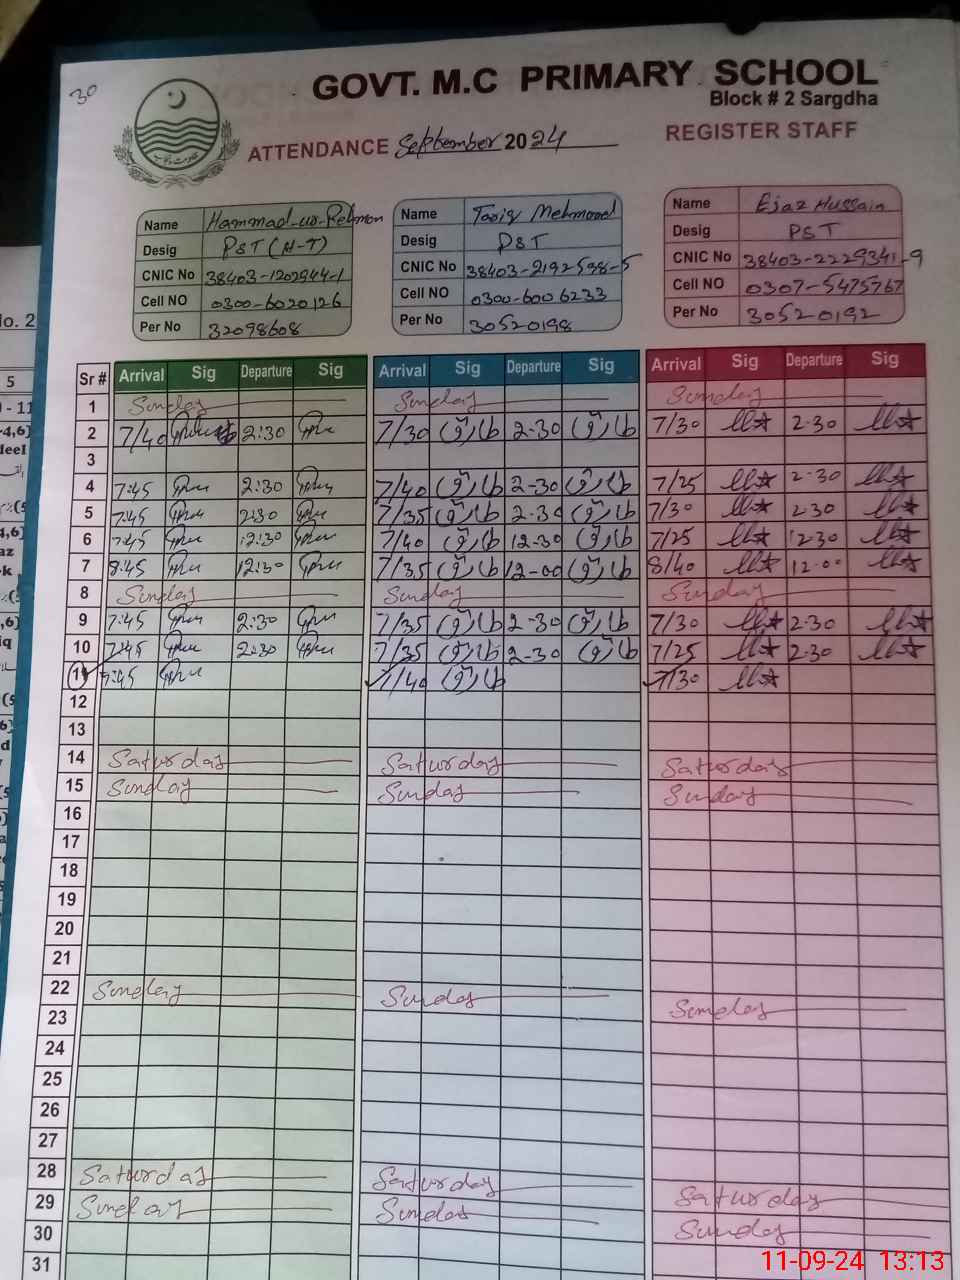 30
GOVT. M.C PRIMARY SCHOOL
Block # 2 Sargdha
ATTENDANCE September 2024 REGISTER STAFF
Name Hammad-ur-Rehman Name Tariq Mehmood Name Ejaz Hussain
Desig PST (H-T) Desig PST Desig PST
CNIC No 38403-1202944-1 CNIC No 38403-2192598-5 CNIC No 38403-2229341-9
Cell NO 0300-6020126 Cell NO 0300-6006233 Cell NO 0307-5475767
Per No 32098608 Per No 30520198 Per No 30520192
Sr # Arrival Sig Departure Sig Arrival Sig Departure Sig Arrival Sig Departure Sig
1 Sunday Sunday Sunday
2 7/40 2:30 7/30 طارق 2-30 طارق 7/30 2-30
3
4 7:45 2:30 7/40 طارق 2-30 طارق 7/25 2-30
5 7:45 2:30 7/35 طارق 2-30 طارق 7/30 2-30
6 7:45 12:30 7/40 طارق 12-30 طارق 7/25 12-30
7 8:45 12:30 7/35 طارق 12-00 طارق 8/40 12-00
8 Sunday Sunday Sunday
9 7:45 2:30 7/35 طارق 2-30 طارق 7/30 2-30
10 7:45 2:30 7/35 طارق 2-30 طارق 7/25 2-30
11 7:45 7/40 طارق 7/30
12
13
14 Saturday Saturday Saturday
15 Sunday Sunday Sunday
16
17
18
19
20
21
22 Sunday Sunday Sunday
23
24
25
26
27
28 Saturday Saturday Saturday
29 Sunday Sunday Sunday
30
31
11-09-24 13:13